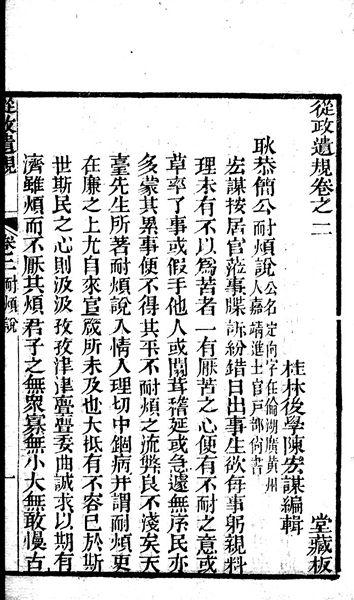 從政遺規卷之二
堂藏板
桂林後學陳宏謀編輯
耿恭簡公耐煩說 公名定向字在倫湖廣黃州
人嘉靖進士官戶部尚書
宏謀按居官蒞事牒訴紛錯日出事生欲每事躬親料
理未有不以爲苦者一有厭苦之心便有不耐之意或
草率了事或假手他人或闒茸稽延或急遽無序民亦
多蒙其累事便不得其平不耐煩之流弊良不淺矣天
臺先生所著耐煩說入情入理切中錮病并謂耐煩更
在廉之上尤自來官箴所未及也大抵有不容已於斯
世斯民之心則汲汲孜孜津津亹亹委曲誠求以期有
濟雖煩而不厭其煩君子之無衆寡無小大無敢慢古
從政遺規
卷二 耐煩說
一